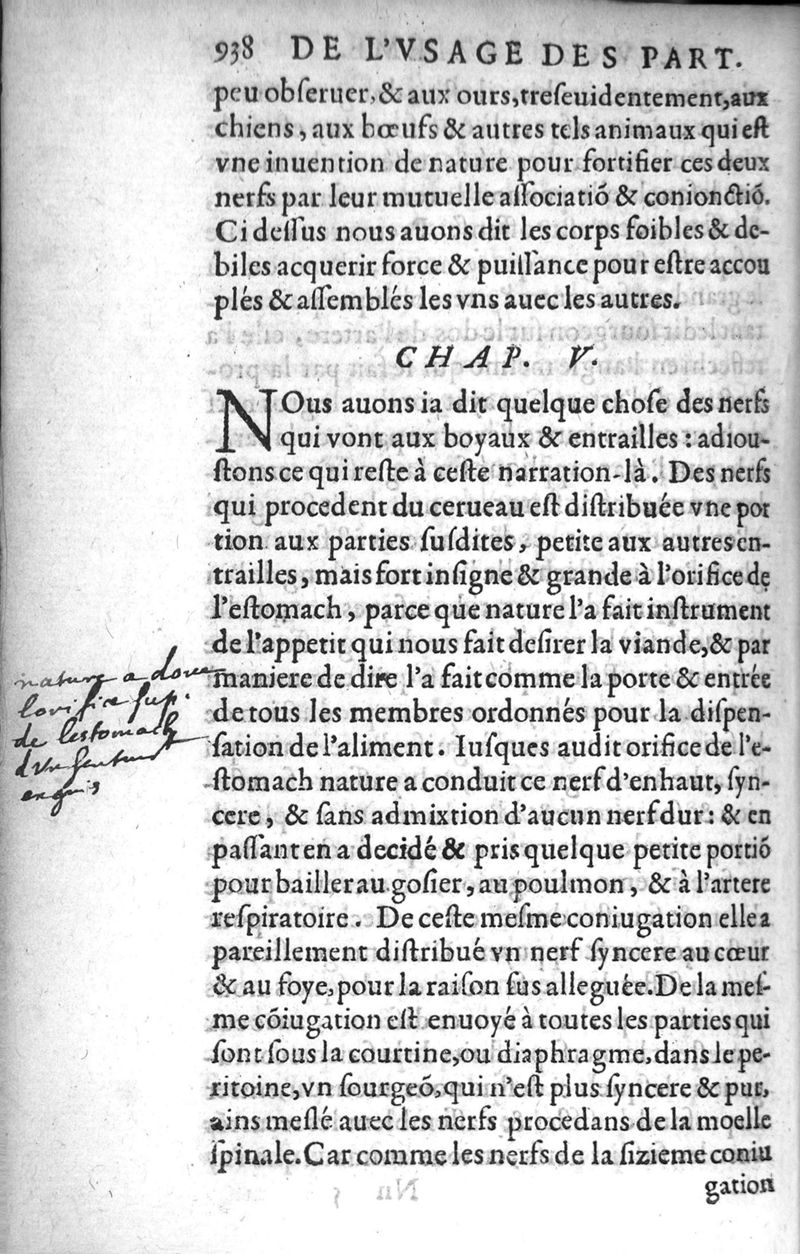 938 DE L'VSAGE DES PART.
peu obſeruer, & aux ours, treſeuidentement, aux
chiens, aux bœufs & autres tels animaux qui eſt
vne inuention de nature pour fortifier ces deux
nerfs par leur mutuelle aſſociatiõ & conionctiõ.
Ci deſſus nous auons dit les corps foibles & de-
biles acquerir force & puiſſance pour eſtre accou
plés & aſſemblés les vns auec les autres.
CHAP. V.
NOus auons ia dit quelque choſe des nerfs
qui vont aux boyaux & entrailles : adiou-
ſtons ce qui reſte à ceſte narration-là. Des nerfs
qui procedent du cerueau eſt diſtribuée vne por
tion aux parties ſuſdites, petite aux autres en-
trailles, mais fort inſigne & grande à l'orifice de
l'eſtomach, parce que nature l'a fait inſtrument
de l'appetit qui nous fait deſirer la viande, & par
maniere de dire l'a fait comme la porte & entrée
de tous les membres ordonnés pour la diſpen-
ſation de l'aliment. Iuſques audit orifice de l'e-
ſtomach nature a conduit ce nerf d'enhaut, ſyn-
cere, & ſans admixtion d'aucun nerf dur : & en
paſſant en a decidé & pris quelque petite portiõ
pour bailler au goſier, au poulmon, & à l'artere
reſpiratoire. De ceſte meſme coniugation elle a
pareillement diſtribué vn nerf ſyncere au cœur
& au foye, pour la raiſon ſus alleguée. De la meſ-
me cõiugation eſt enuoyé à toutes les parties qui
ſont ſous la courtine, ou diaphragme, dans le pe-
ritoine, vn ſourgeõ, qui n'eſt plus ſyncere & pur,
ains meſlé auec les nerfs procedans de la moelle
ſpinale. Car comme les nerfs de la ſizieme coniu
gation
nature a doue
lorifice sup.
de lestomach
d'vn sentiment